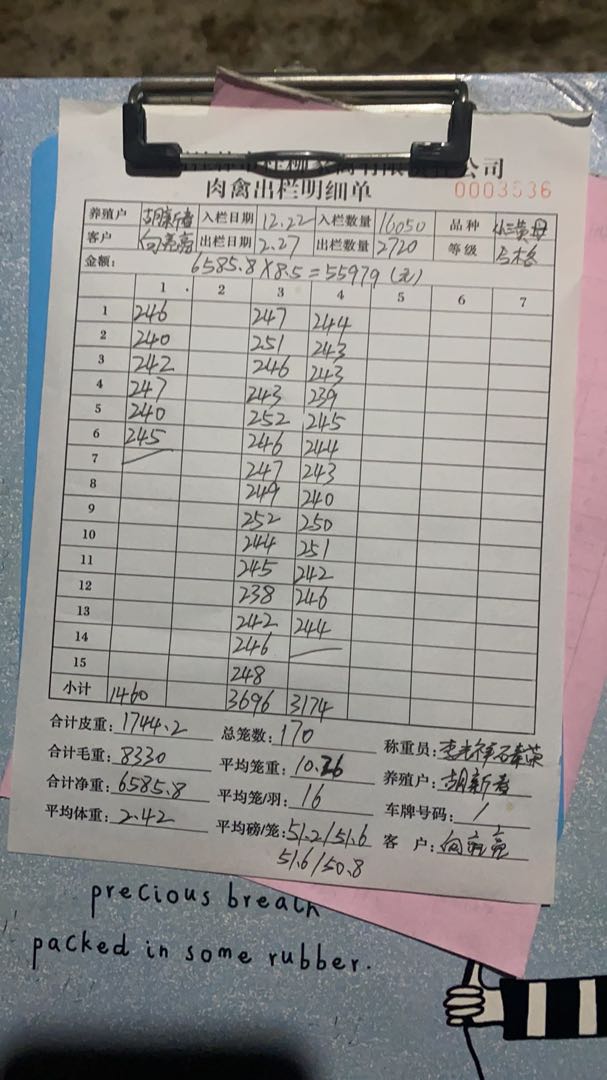 限责任公司
肉禽出栏明细单 0003536
养殖户 胡新春 入栏日期 12.22 入栏数量 16050 品种
客户 向亮亮 出栏日期 2.27 出栏数量 2720 等级 合格
金额: 6585.8×8.5=55979(元)
1 2 3 4 5 6 7
1 246 247 244
2 240 251 243
3 242 246 243
4 247 243 239
5 240 252 245
6 245 246 244
7 247 243
8 249 240
9 252 250
10 244 251
11 245 242
12 238 246
13 242 244
14 246
15 248
小计 1460 3696 3174
合计皮重: 1744.2 总笼数: 170 称重员:
合计毛重: 8330 平均笼重: 10.26 养殖户: 胡新春
合计净重: 6585.8 平均笼/羽: 16 车牌号码: 1
平均体重: 2.42 平均磅/笼: 51.2/51.6 客 户: 向亮亮
51.6/50.8
precious breath
packed in some rubber.